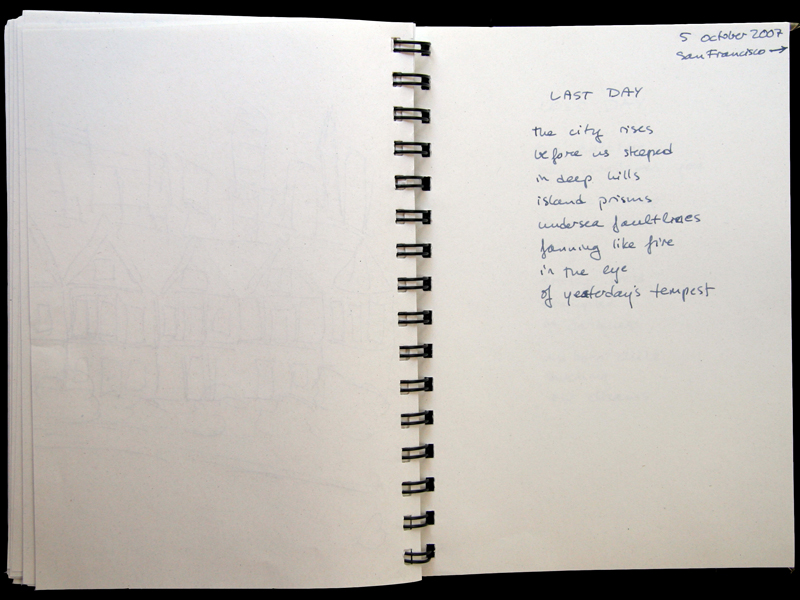 5 october 2007
San Francisco →
LAST DAY
the city rises
before us steeped
in deep hills
island prisms
undersea faultlines
fanning like fire
in the eye
of yesterday's tempest